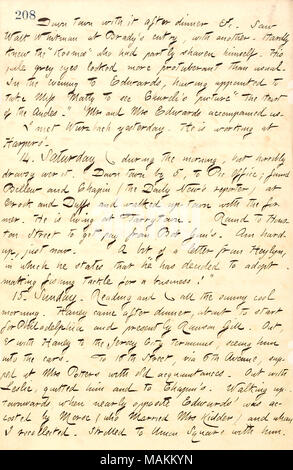 208
Down town with it after dinner &c. Saw
Walt Whitman at Brady's entry, with another. Hardly
knew the "Kosmos" who had partly shaven himself. His
pale grey eyes looked more protuberant than usual.
In the evening to Edwards, having appointed to
take Miss Matty to see Church's picture "the Heart of
the Andes." Mr and Mrs Edwards accompanied us.
I met Wurzbach yesterday. He is working at
Harpers.
14. Saturday. during the morning, not horribly
drowsy over it. Down town by 5, to Pic Office; found
Bellew and Chapin (the Daily News's reporter) at
Crook and Duffs and walked up-town with the for
mer. He is living at Tarrytown. Round to Hous
ton Street to get pay from Am hard-
up, just now. A lot of a letter from Heylyn,
in which he states that he has decided to adopt
making fishing tackle for a business!
15. Sunday. Reading and all the sunny cool
morning. Haney came after dinner, about to start
for Philadelphia and presently Ransom Gill. Out
with Haney to the Jersey City terminus, seeing him
into the cars. To 16th Street, via 6th Avenue, sup
ped at Mrs Potters with old acquaintances. Out with
Leslie, quitted him and to Chapin's. Walking up-
townwards when nearly opposite Edwards' was ac-
costed by Morse (who married Mrs Kidder) and whom
I recollected. Strolled to Union Square with him.
alamy
MAKKYN